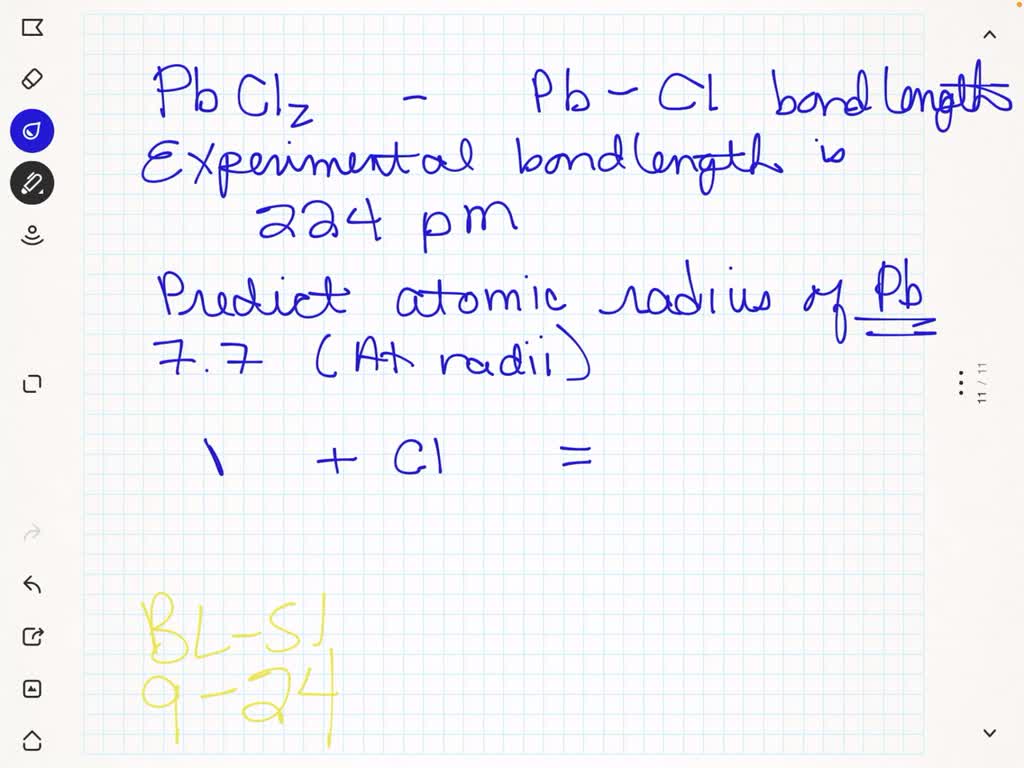 PbCl₂ - Pb-Cl bond length
Experimental bond length is
224 pm
Predict atomic radius of Pb
7.7 (At radii)
\ + Cl =
11 / 11
BL-SJ
9-24